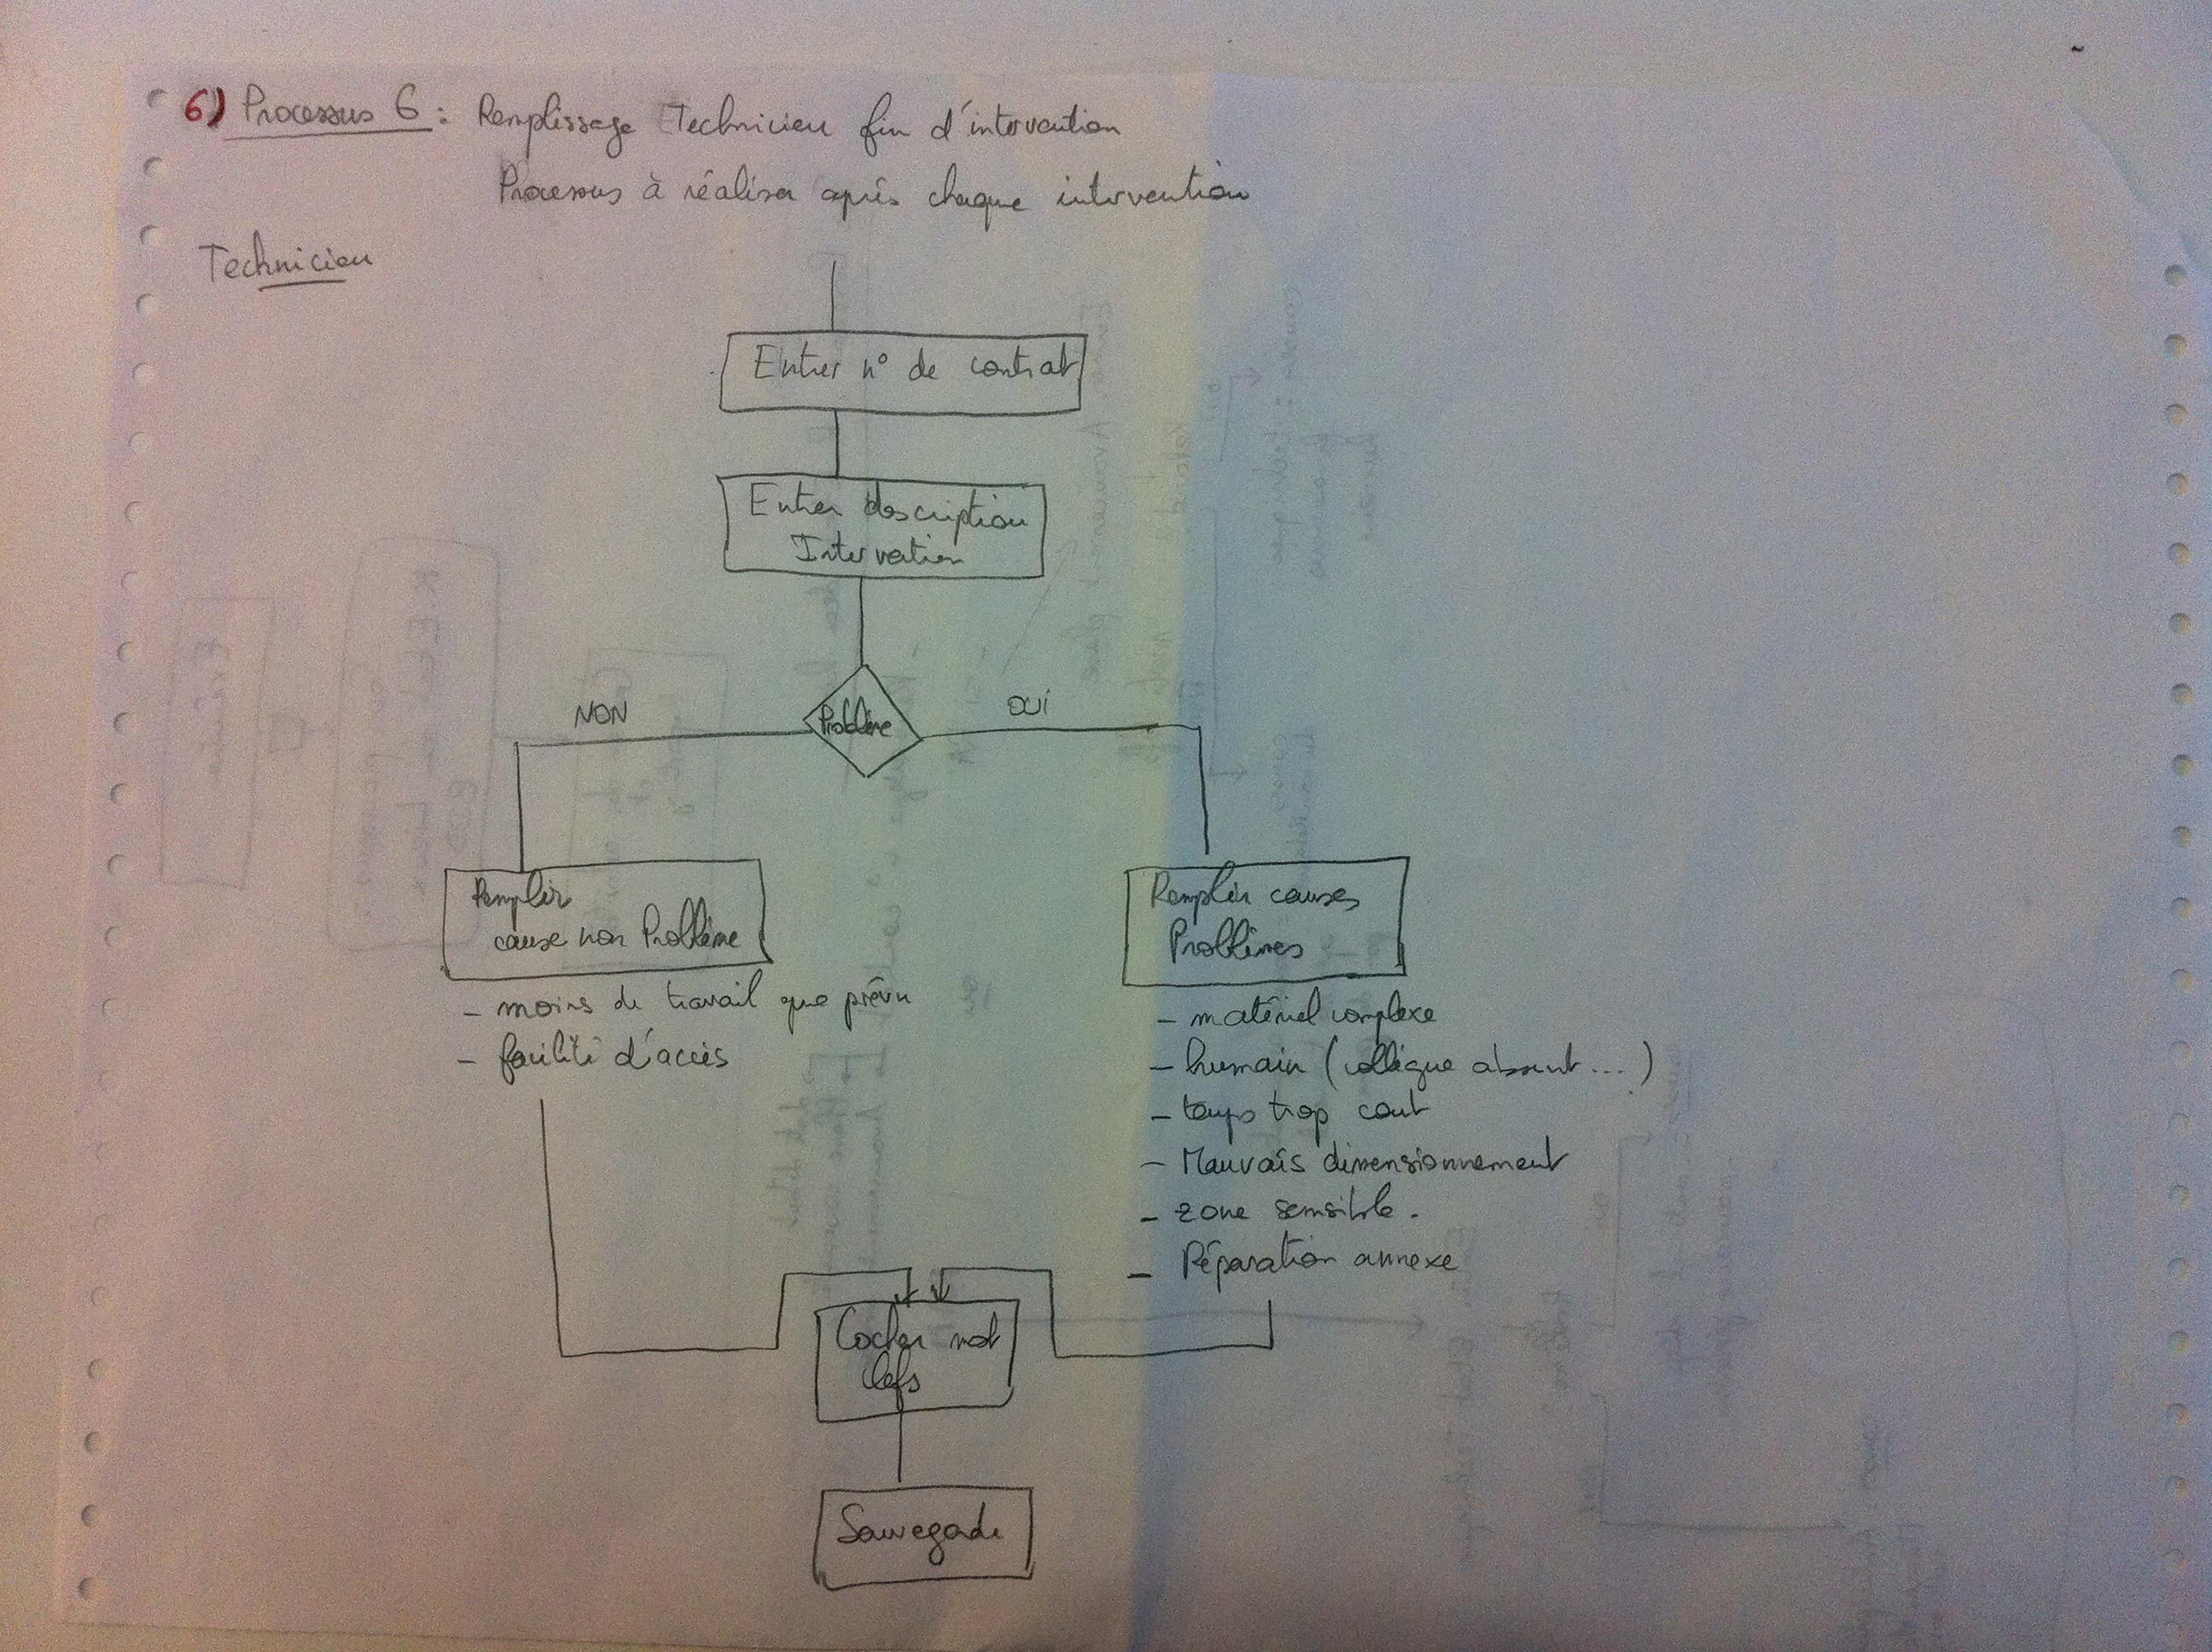 6) Processus 6 : Remplissage Technicien fin d'intervention
Processus à réaliser après chaque intervention
Technicien
Entrer n° de contrat
Entrer description
Intervention
Problème
NON
OUI
Remplir
cause non Problème
- moins de travail que prévu
- facilité d'accès
Remplir causes
Problèmes
- matériel complexe
- humain (collègue absent...)
- temps trop court
- Mauvais dimensionnement
- zone sensible.
- Réparation annexe
Cocher mot
clefs
Sauvegarde